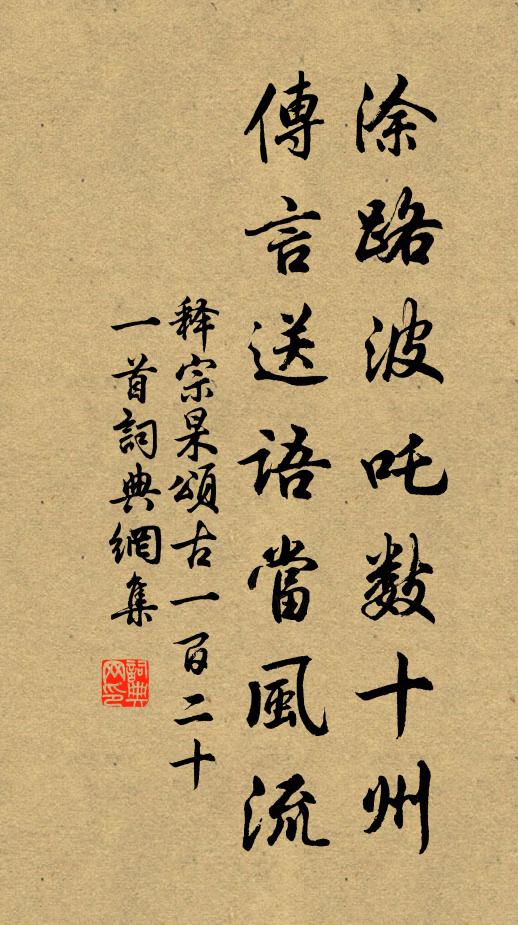 涂路波吒数十州
傳言送語當風流
释宗杲頌古一百二十
一首詞典網集
詞典
网印